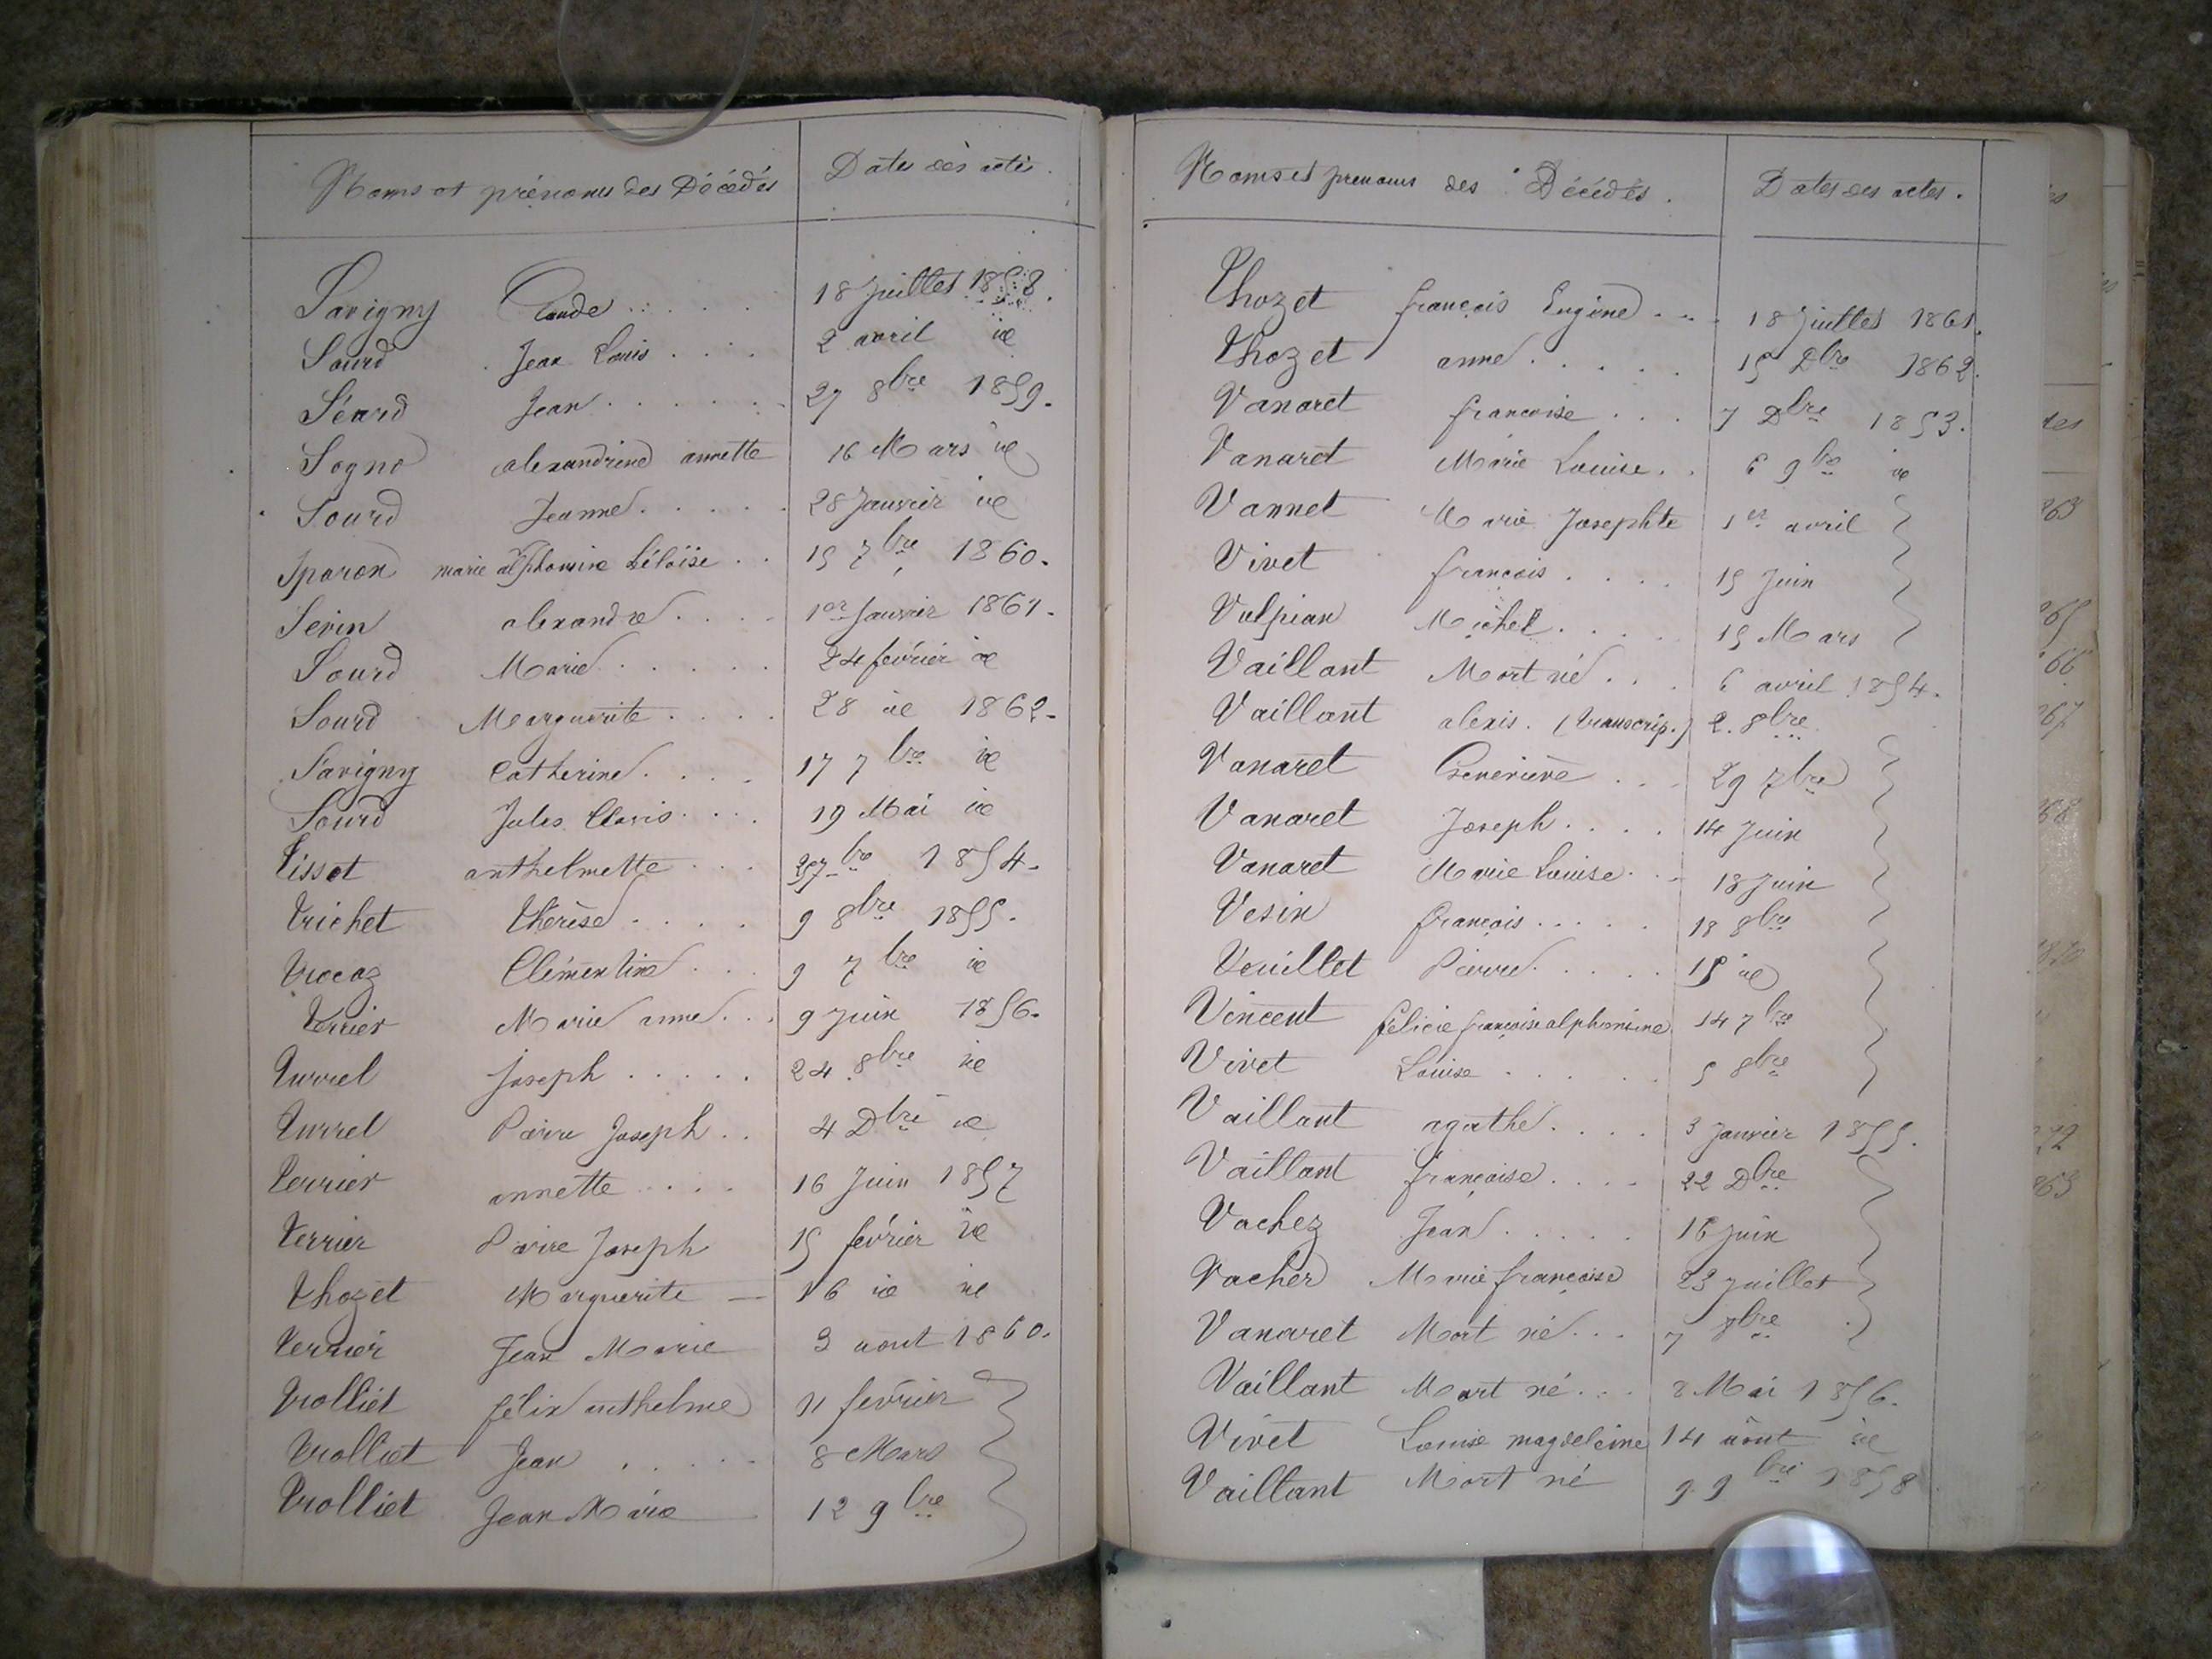 Noms et prénoms des Décédés Dates des actes.
Savigny Claude 18 Juillet 1858.
Sourd Jean Louis 2 avril id
Séard Jean 27 8bre 1859.
Sogno alexandrine annette 16 Mars id
Sourd Jeanne 28 Janvier id
Sparon marie alphonsine Héloïse 15 7bre 1860.
Sevin alexandre 1er Janvier 1861.
Sourd Marie 24 février id
Sourd Marguerite 28 id 1862.
Savigny Catherine 17 7bre id
Sourd Jules Clovis 19 Mai id
Tissot anthelmette 7bre 1854.
Trichet thérèse 9 8bre 1855.
Trocaz Clémentine 9 7bre id
Terrier Marie anne 9 Juin 1856.
Turrel Joseph 24 8bre id
Turrel Pierre Joseph 4 Dbre id
Terrier annette 16 Juin 1857
Terrier Pierre Joseph 15 février id
Thozet Marguerite 16 id id
Terrier Jean Marie 3 aout 1860.
Trolliet félix anthelme 11 février
Trolliet Jean 8 Mars
Trolliet Jean Marie 12 9bre
Noms et prenoms des Décédés. Dates des actes.
Thozet françois Eugène 18 Juillet 1861.
Thozet anne 15 Dbre 1862.
Vanaret francoise 7 Dbre 1853.
Vanaret Marie Louise 6 9bre id
Vannet Marie Josephte 1er avril
Vivet françois 15 Juin
Vulpian Michel 15 Mars
Vaillant Mort né 6 avril 1854.
Vaillant alexis. (transcrip.) 2. 8bre
Vanaret Geneviève 29 7bre
Vanaret Joseph 14 Juin
Vanaret Marie Louise 18 Juin
Vesin françois 18 8bre
Veuillet Pierre 15 id
Vincent félicie françoise alphonsine 14 7bre
Vivet Louise 5 8bre
Vaillant agathe 3 Janvier 1855.
Vaillant françoise 22 Dbre
Vachez Jean 16 Juin
Vacher Marie françoise 23 Juillet
Vanaret Mort né 7 8bre
Vaillant Mort né 8 Mai 1856.
Vivet Louise magdeleine 14 aout id
Vaillant Mort né 9 9bre 1858